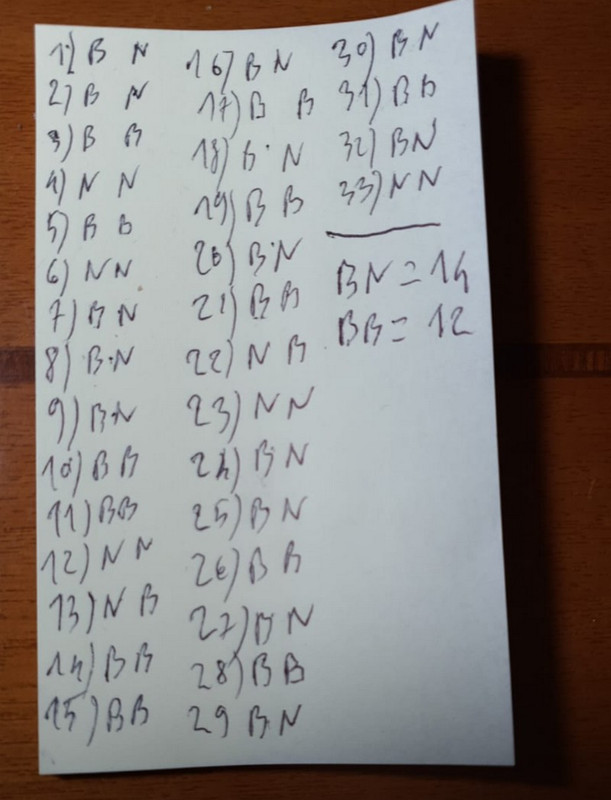 1) B N
2) B N
3) B B
4) N N
5) B B
6) N N
7) B N
8) B·N
9) BN
10) BB
11) BB
12) N N
13) N B
14) BB
15) BB
16) BN
17) B B
18) B· N
19) B B
20) B·N
21) BB
22) N B
23) NN
24) BN
25) BN
26) BB
27) BN
28) BB
29 BN
30) BN
31) BB
32) BN
33) NN
BN = 14
BB = 12